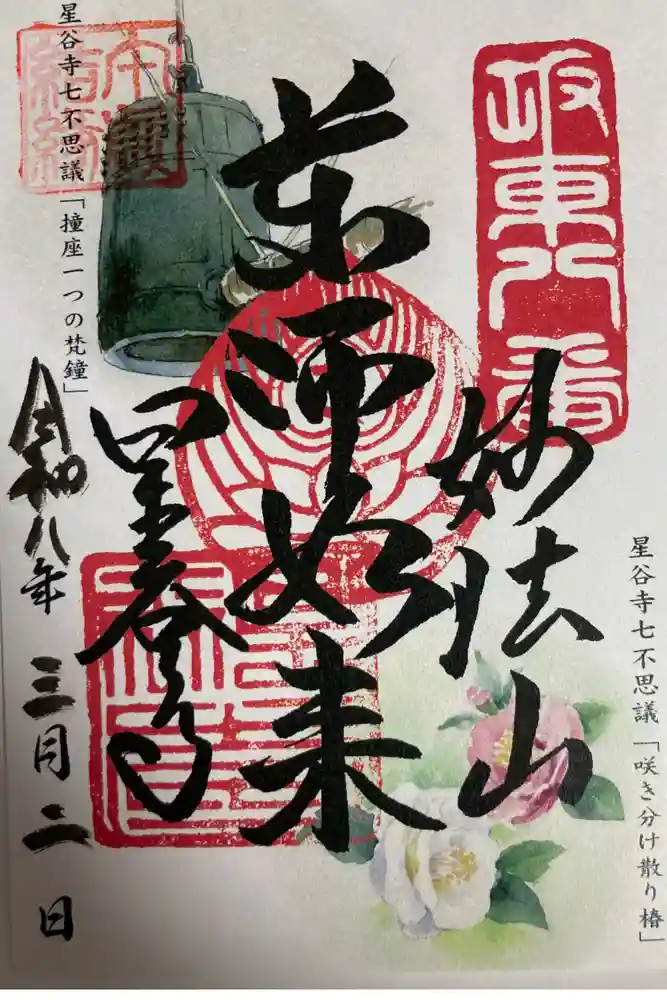 坂東八番
星谷寺七不思議「咲き分け散り椿」
妙法山
薬師如来
星谷寺
星谷寺七不思議「撞座一つの梵鐘」
令和八年三月二日